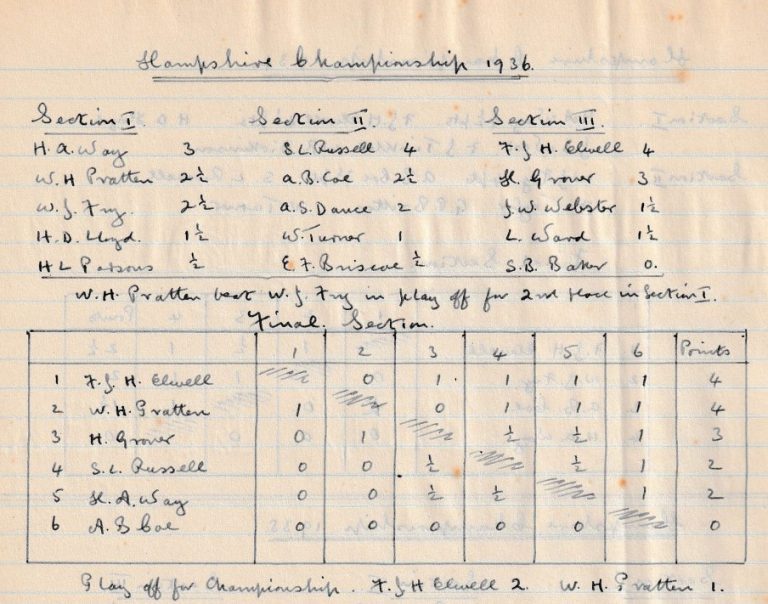 Hampshire Championship 1936.
Section I. Section II. Section III.
H. A. Way 3 S. L. Russell 4 F. J. H. Elwell 4
W. H Pratten 2½ A. B. Coe 2½ H. Grover 3
W. J. Fry 2½ A. S. Dance 2 J. W. Webster 1½
H. D. Lloyd. 1½ W. Turner 1 L. Ward 1½
H L Parsons ½ E. F. Briscoe ½ S. B. Baker 0.
W. H. Pratten beat W. J. Fry in play off for 2nd place in Section I.
Final Section.
1 2 3 4 5 6 Points
1 F. J H. Elwell 0 1 1 1 1 4
2 W. H. Pratten 1 0 1 1 1 4
3 H. Grover 0 1 ½ ½ 1 3
4 S. L. Russell 0 0 ½ ½ 1 2
5 H. A. Way 0 0 ½ ½ 1 2
6 A. B Coe 0 0 0 0 0 0
Play off for Championship. F. J H Elwell 2. W. H. Pratten 1.